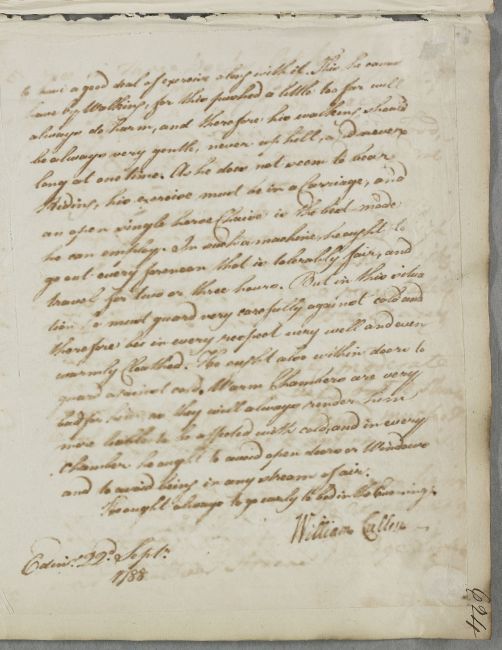 to have a good deal of exercise along with it. This he cannot
have by Walking, for this pushed a little too far will
always do harm, and therefore his walking should
be always very gentle, never up hill, and never
long at one time. As he does not seem to bear
Riding, his exercise must be in a Carriage, and
an open single horse Chaise is the best mode
he can employ. In such a machine, he ought to
go out every forenoon that is tolerably fair, and
travel for two or three hours. But in this situa
tion he must guard very carefully against cold and
therefore be in every respect very well and even
warmly Cloathed. He ought also within doors to
guard against cold. Warm Chambers are very
bad for him, as they will always render him
more liable to be affected with cold, and in every
Chamber he ought to avoid open doors or Windows
and to avoid being in any stream of air.
He ought always to go early to bed in the Evening.
William Cullen
Edinr. 22d. Septr.
1788
624